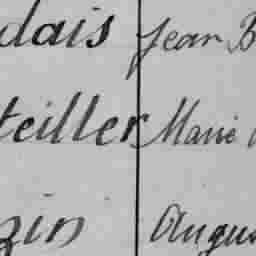 dais Jean B
teiller Marie
zin Augus